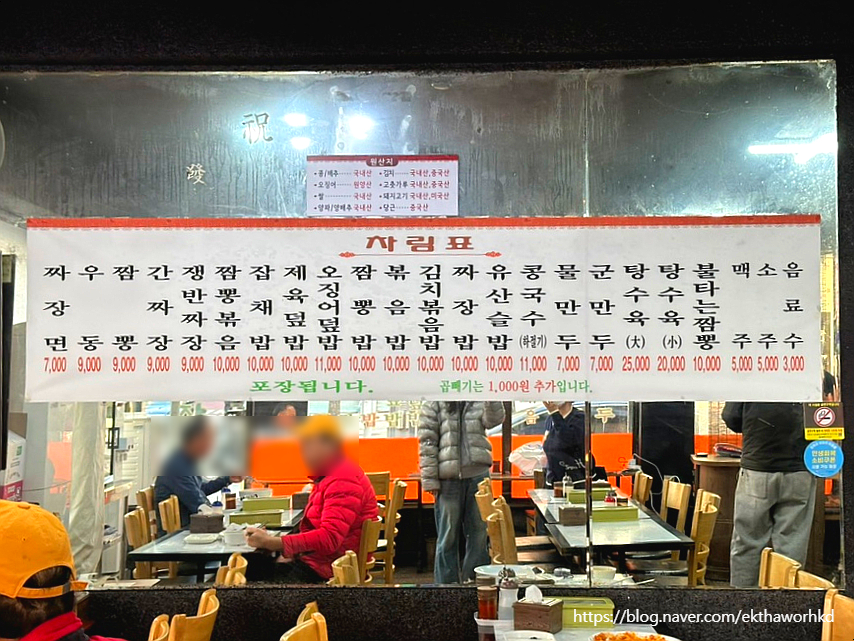 祝
發
원산지
• 콩/배추 국내산 • 김치 국내산,중국산
• 오징어 원양산 • 고춧가루 국내산,중국산
• 쌀 국내산 • 돼지고기 국내산,미국산
• 양파/양배추 국내산 • 당근 중국산
차림표
짜장면 7,000
우동 9,000
짬뽕 9,000
간짜장 9,000
쟁반짜장 9,000
짬뽕볶음 10,000
잡채밥 10,000
제육덮밥 10,000
오징어덮밥 11,000
짬뽕밥 10,000
볶음밥 10,000
김치볶음밥 10,000
짜장밥 10,000
유산슬밥 10,000
콩국수(하절기) 11,000
물만두 7,000
군만두 7,000
탕수육(大) 25,000
탕수육(小) 20,000
불타는짬뽕 10,000
맥주 5,000
소주 5,000
음료수 3,000
포장됩니다.
곱빼기는 1,000원 추가입니다.
민생회복
소비쿠폰
https://blog.naver.com/ekthaworhkd